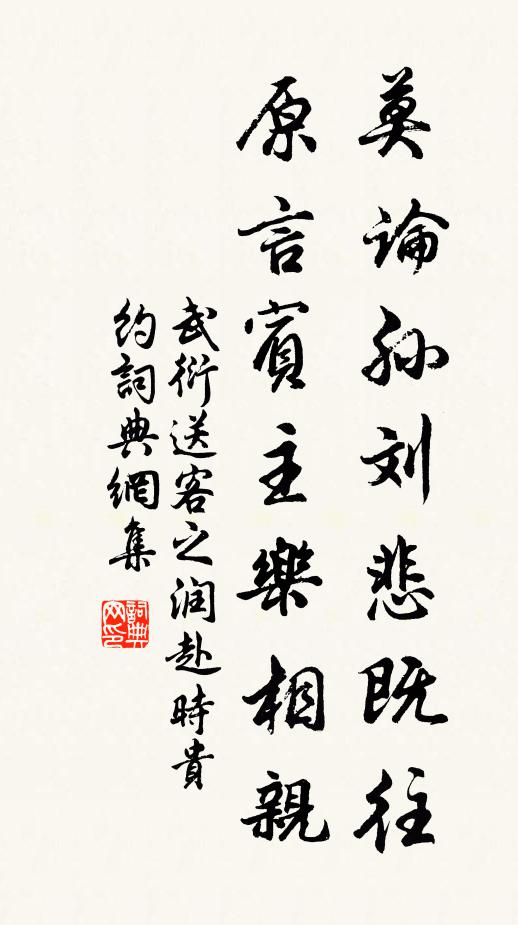 莫論孙刘悲既往
原言賓主樂相親
武衍送客之润赴時貴
约詞典網集
詞典网印